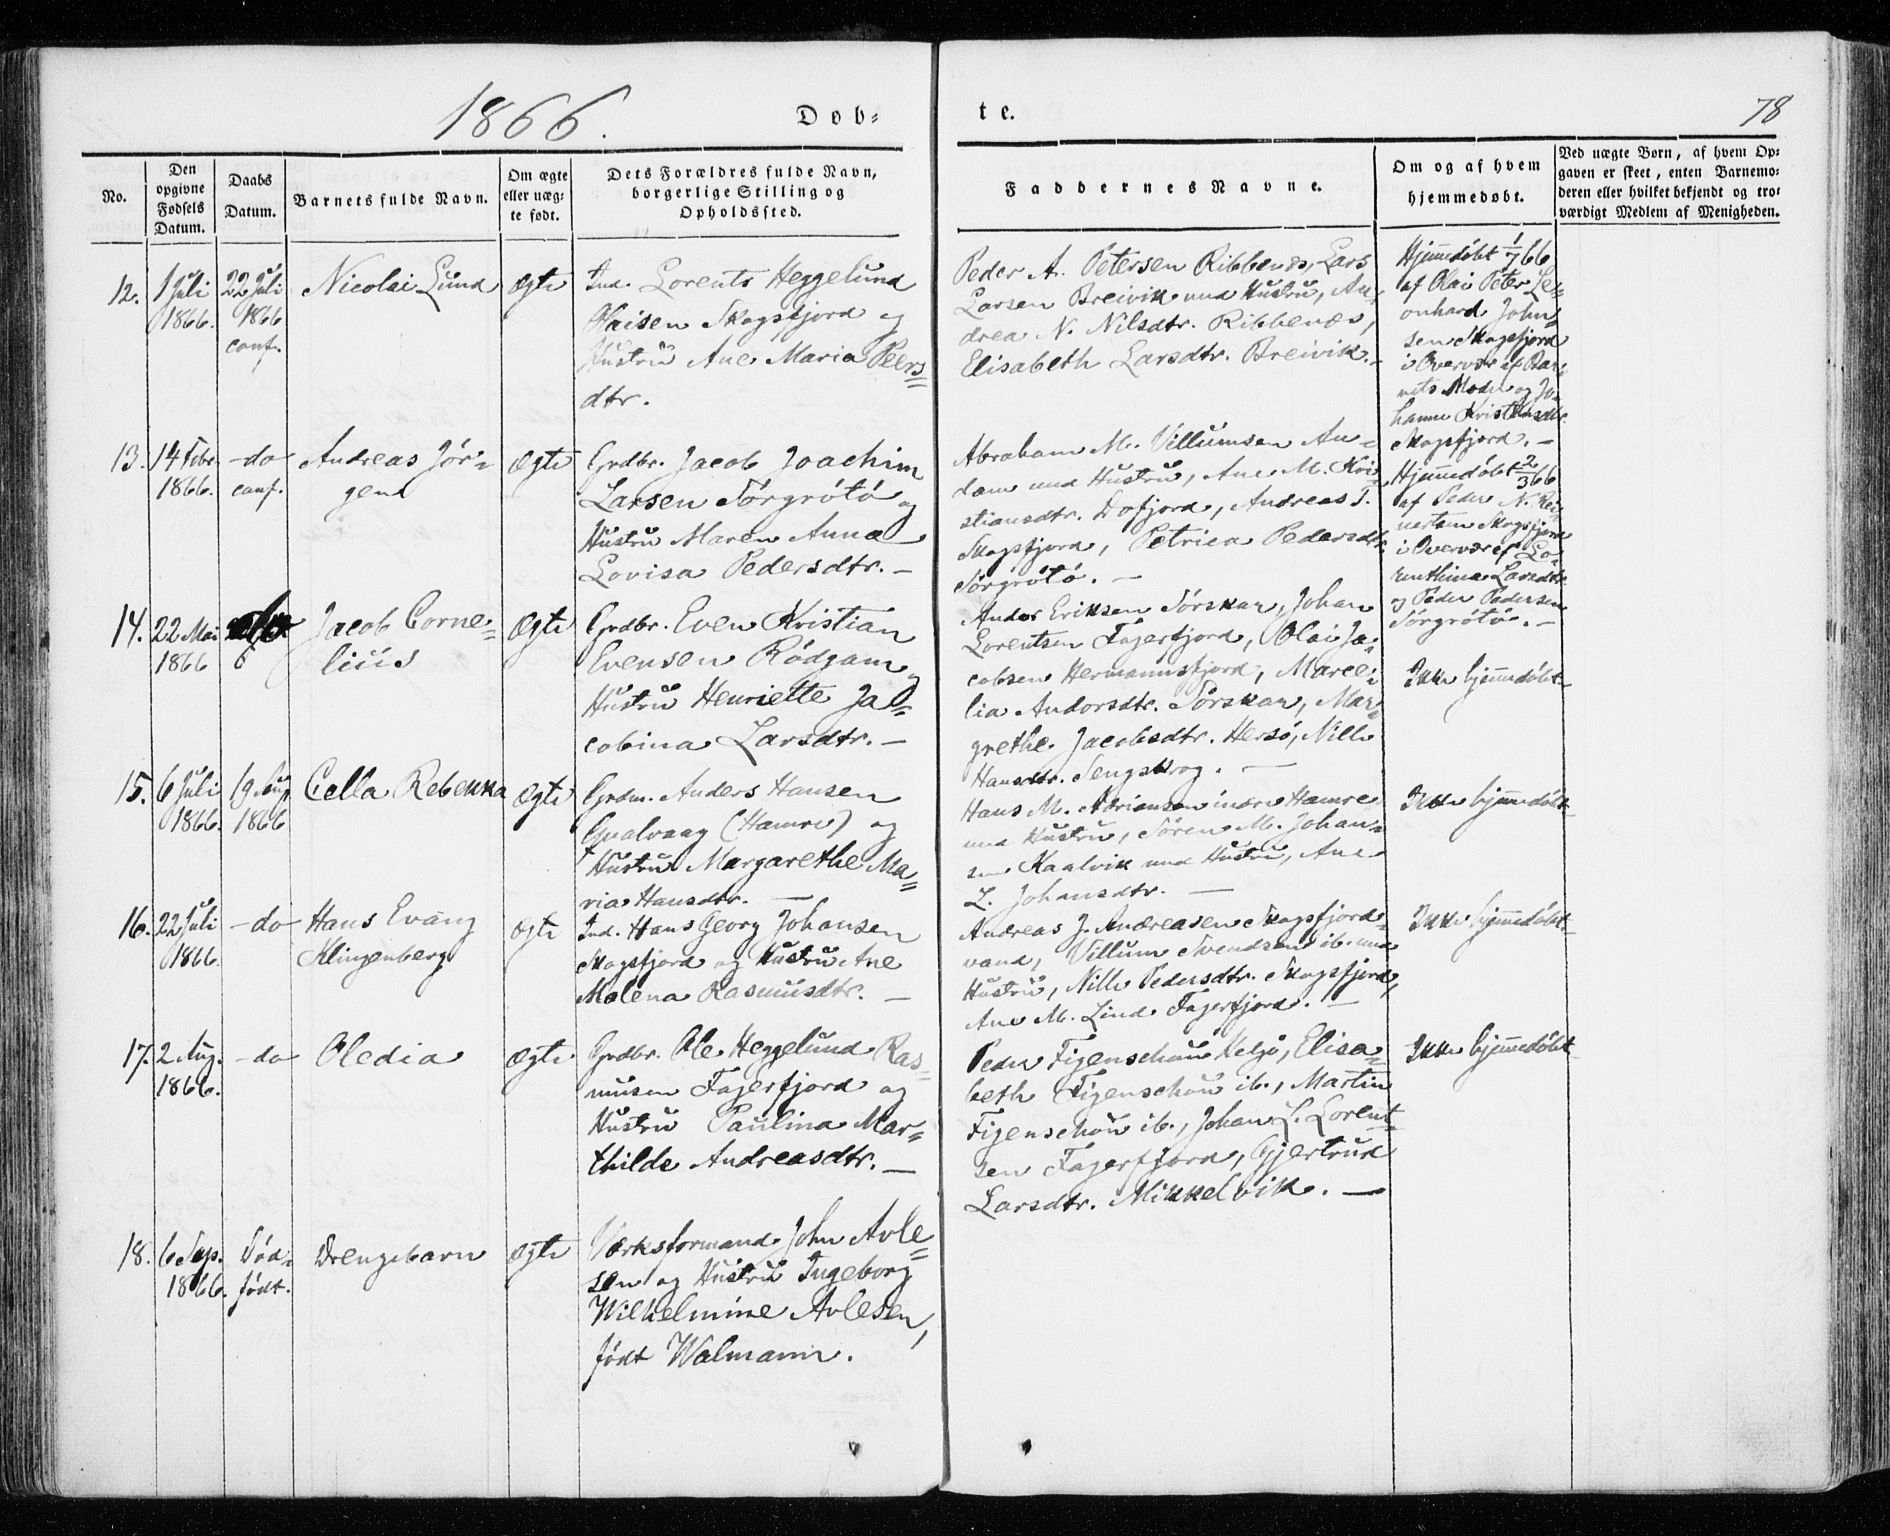 1866.
Døb=
te.
78
No.
Den
opgivne
Fødsels
Datum.
Daabs
Datum.
Barnets fulde Navn.
Om ægte
eller uæg=
te født.
Dets Forældres fulde Navn,
borgerlige Stilling og
Opholdssted.
Faddernes Navne.
Om og af hvem
hjemmedøbt.
Ved uægte Børn, af hvem Op=
gaven er skeet, enten Barnemo=
deren eller hvilket bekjendt og tro=
værdigt Medlem af Menigheden.
12.
1 Juli
1866.
22 Juli
1866
conf.
Nicolai Lund
Ægte
Ind. Lorents Heggelund
Skogsfjord og
Hustru Ane Maria Peers=
dtr.
Peder A. Petersen Ribbenæs, Lars
Larsen Breivik med Hustru, An=
drea N. Nilsdtr. Ribbenæs,
Elisabeth Larsdtr. Breivik.
Hjemmedøbt 1/7 66
af Olai Peter Le=
onhard John=
sen Skogsfjord
i Overvær af Bar=
nets Moder og Jo=
hanne
Skogsfjord. —
13.
14 Febr.
1866.
- do
conf.
Andreas Jør=
gen
Ægte
Grdbr. Jacob Joachim
Larsen Sørgrøtø og
Hustru Maren Anna
Lovisa Pedersdtr. —
Abraham M. Villumsen An=
dam med Hustru, Ane M. Kri=
stiansdtr. Dofjord, Andreas J.
Skogsfjord, Petrica Pedersdtr.
Sørgrøtø. —
Hjemmedøbt 2/3 66
af Peder N. Rei=
nertsen Skogsfjord
i Overvær af Lo=
renthina Larsdtr.
og Peder Pedersen
Sørgrøtø. —
14.
22 Mai
1866
Jacob Corne=
lius
Ægte
Grdbr. Even Kristian
Evensen Rødgam og
Hustru Henriette Ja=
cobina Larsdtr. —
Andor Eriksen Sørskar, Johan
Lorentsen Fagerfjord, Olai Ja=
cobsen Hermannsfjord, Marce=
lia Andorsdtr. Sørskar, Mar=
grethe Jacobsdtr. Hersø, Nille
Hansdtr. Sengskrog. —
Ikke hjemmedøbt
15.
6 Juli
1866.
19 Aug.
1866
Cella Rebekka
Ægte
Grdm. Anders Hansen
Gualvaag (Hamre) og
Hustru Margarethe Ma=
ria Hansdtr. —
Hans M. Adriansen indre Hamre
med Hustru, Søren M. Johan=
sen Kaalvik med Hustru, Ane
L. Johansdtr. —
Ikke hjemmedøbt
16.
22 Juli
1866.
- do
Hans Evang
Klingenberg
Ægte
Ind. Hans Georg Johansen
Skogsfjord og Hustru Ane
Malena Rasmusdtr. —
Andreas J. Andreasen Skogsfjord=
vand, Villum Svendsen ib. med
Hustru, Nille Pedersdtr. Skogsfjord,
Ane M. Lind Fagerfjord. —
Ikke hjemmedøbt
17.
2 Aug.
1866.
- do
Oledia
Ægte
Grdbr. Ole Heggelund Ras=
musen Fagerfjord og
Hustru Paulina Mar=
thilde Andreasdtr. —
Peder Figenschou Helgø, Elisa=
beth Figenschou ib., Martin
Figenschou ib., Johan L. Lorent=
sen Fagerfjord, Gjertrud
Larsdtr. Mikkelvik. —
Ikke hjemmedøbt
18.
6 Sep.
1866.
Død=
født.
Drengebarn
Ægte
Værksformand John Avle=
sen og Hustru Ingeborg
Wilhelmine Avlesen,
født Walmann.